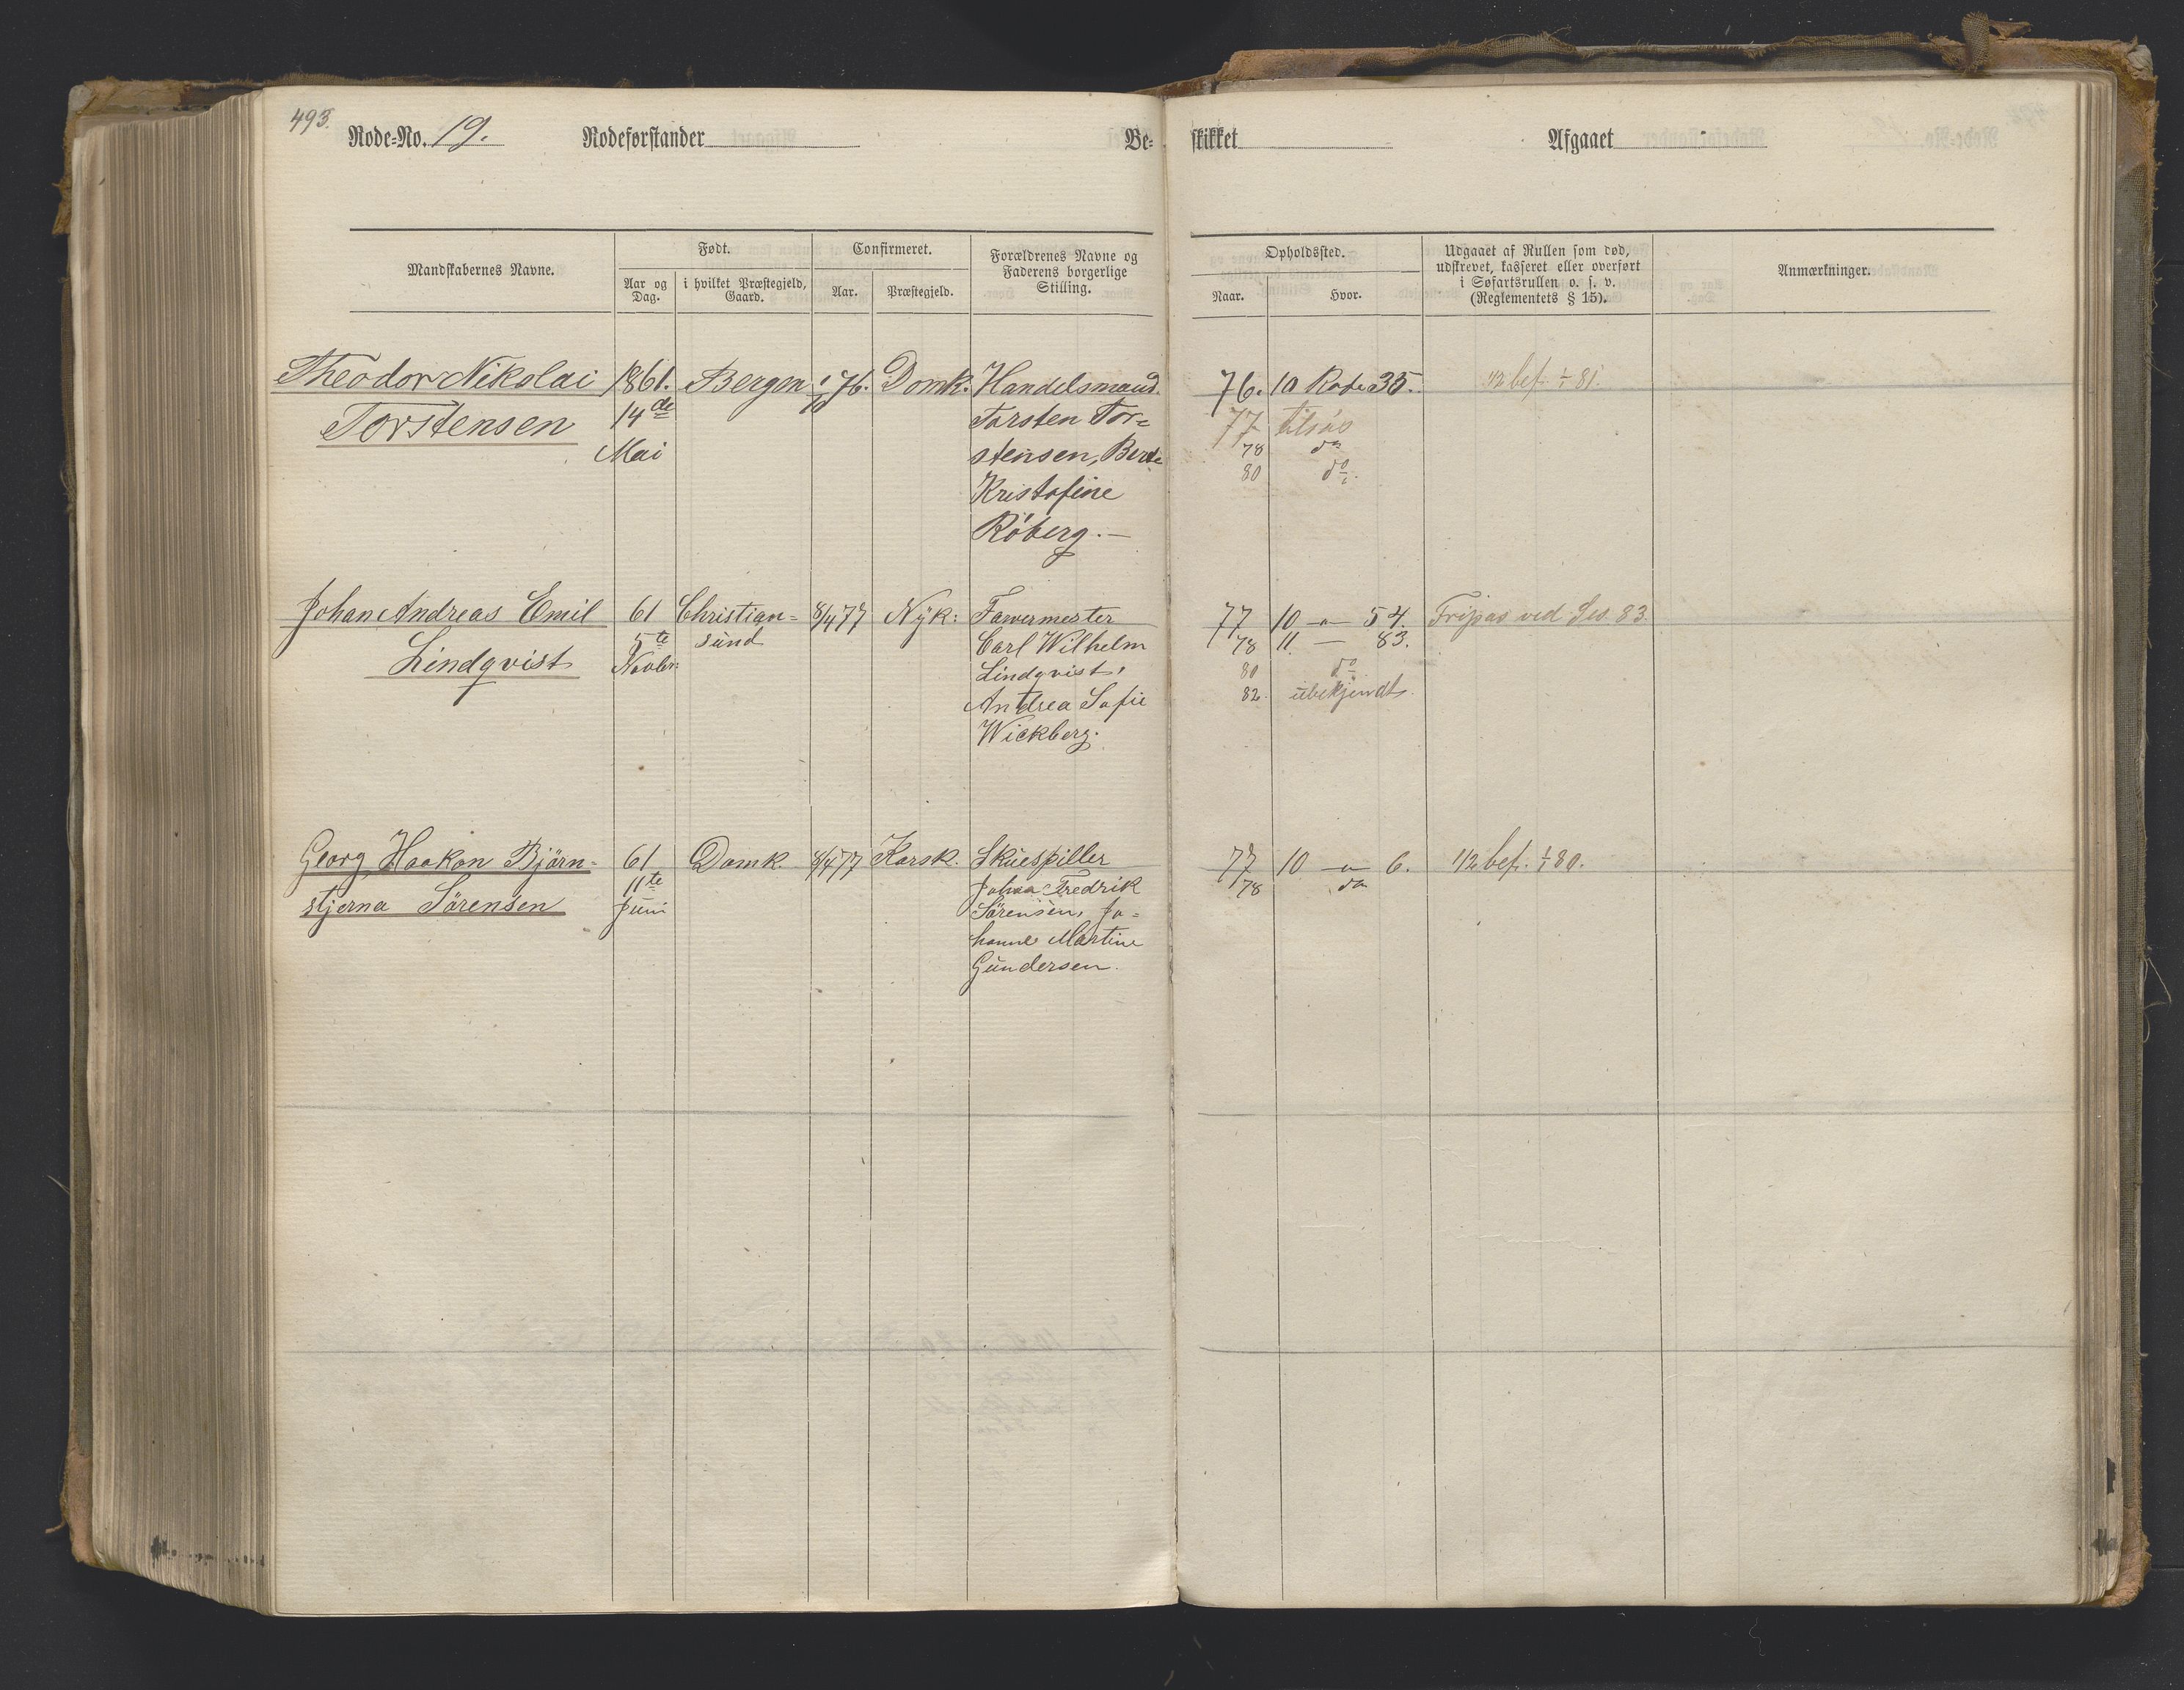 493.
Rode=No. 19. Rodeforstander Be=skikket Afgaaet
Mandskabernes Navne. Født. Confirmeret. Forældrenes Navne og Faderens borgerlige Stilling. Opholdssted. Udgaaet af Rullen som død, udskrevet, kasseret eller overført i Søfartsrullen o. s. v. (Reglementets § 15). Anmærkninger.
Aar og Dag. i hvilket Præstegjeld, Gaard. Aar. Præstegjeld. Naar. Hvor.
Theodor Nikolai 1861. Bergen 1/10 76. Domk. Handelsmand 76. 10 Rode 35. 1/2 bef. 1/1 81.
Torstensen 14de Torsten Tor= 77 tilsøs
Mai stensen, Berte 78 do
Kristofine 80 do.
Röberg.—
Johan Andreas Emil 61 Christian= 8/4 77 Nÿk: Farvermester 77 10 — " — 54. Fripas ved Ses. 83.
Lindqvist 5te sund Carl Wilhelm 78 11 — 83.
Novbr: Lindqvist, 80 do
Andrea Sofie 82. ubekjendt.
Wickberg.
Georg Haakon Björn= 61 Domk. 8/4 77 Korsk. Skuespiller 77 10 — " — 6. 1/2 bef. 1/1 80.
stjerna Sörensen 11te Johan Fredrik 78 do
Juni Sörensen, Jo=
hanne Martine
Gundersen.